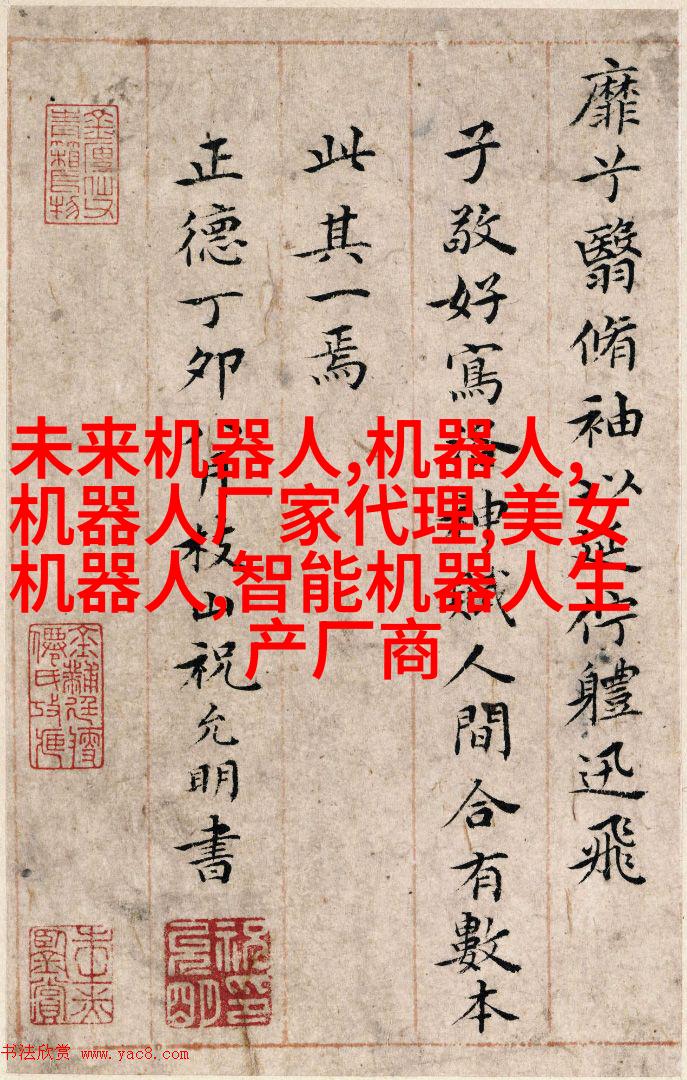 靡兮翳脩袖以延佇體迅飛
子敬好寫洛神賦人間合有數本
此其一焉
正德丁卯枝山祝允明書
未来机器人,机器人,
机器人厂家代理,美女
机器人,智能机器人生
产厂商
书法欣赏 www.yac8.com